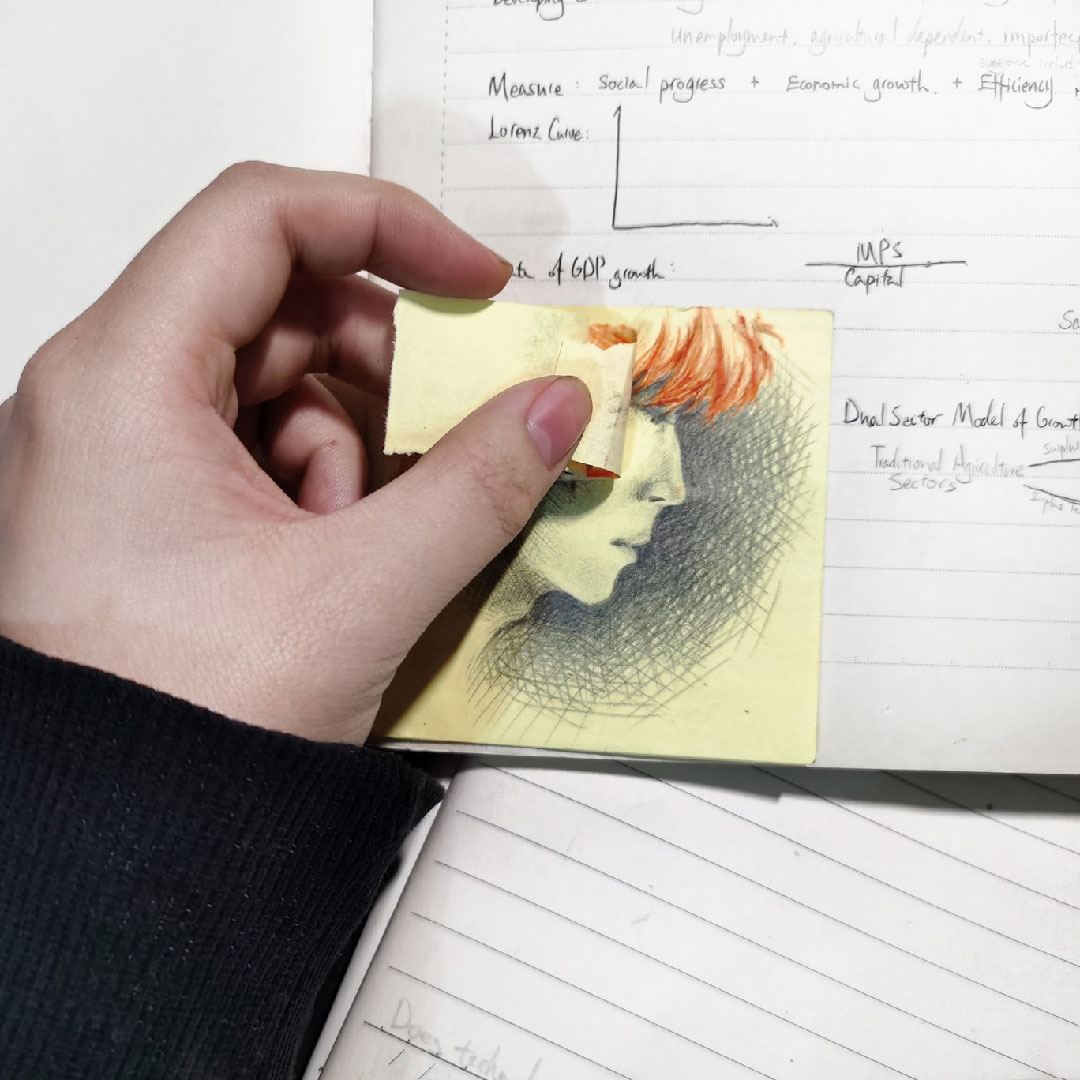 Developing
unemployment, agricultural dependent, imperfec
Measure : Social progress + Economic growth. + Efficiency
Lorenz Curve:
of GDP growth:
MPS
Capital
Dual Sector Model of Growth
Traditional Agriculture
Sectors
surplus
Does techno